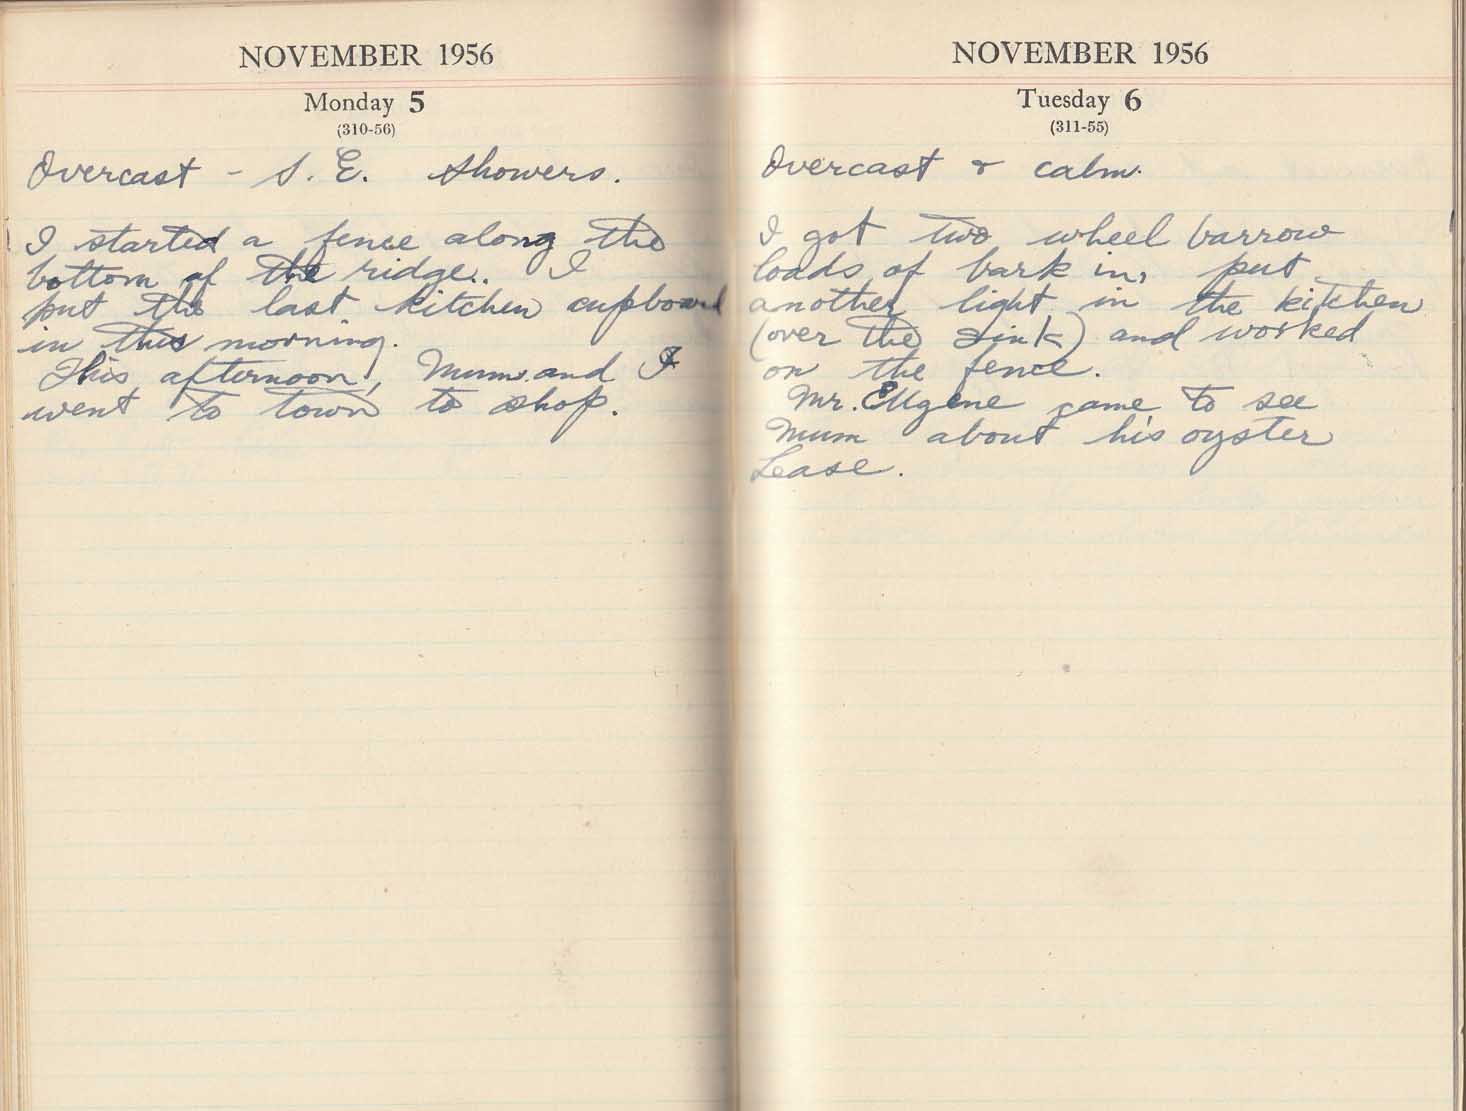 NOVEMBER 1956
Monday 5
(310-56)
Overcast - S. E. Showers.
I started a fence along the
bottom of the ridge. I
put the last kitchen cupboard
in this morning.
This afternoon, Mum and I
went to town to shop.
NOVEMBER 1956
Tuesday 6
(311-55)
Overcast & calm.
I got two wheel barrow
loads of bark in, put
another light in the kitchen
(over the sink) and worked
on the fence.
Mr. Eugene came to see
Mum about his oyster
Lease.